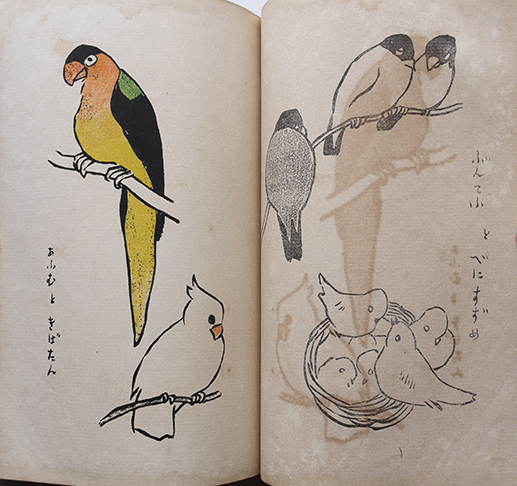 ぶんてふ と べにすずめ
あふむ と きばたん